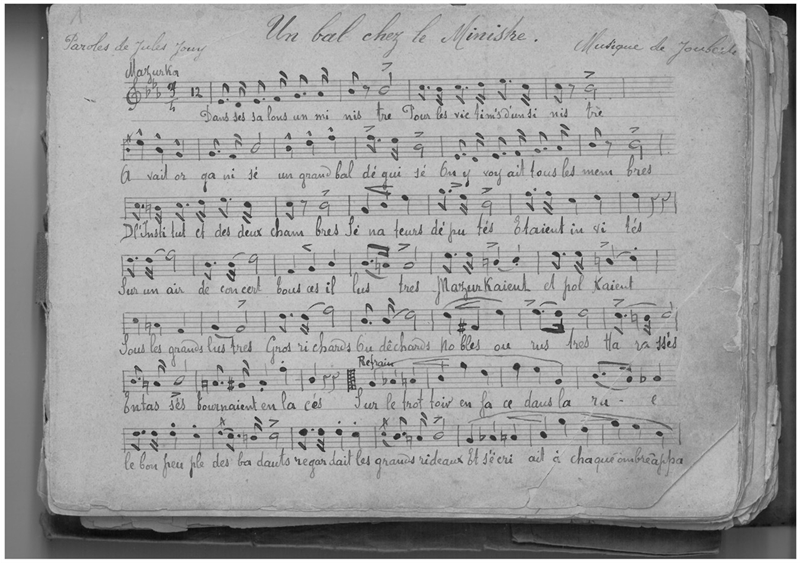 Un bal chez le Ministre.
Paroles de Jules Jouy
Musique de Jouberte
Mazurka
12
Dans ses sa lons un mi nis tre Pour les vic tim's d'un si nis tre
A vait or ga ni sé un grand bal dé gui sé On y voy ait tous les mem bres
D'l'Insti tut et des deux cham bres Sé na teurs dé pu tés Etaient in vi tés
Sur un air de con cert tous ces il lus tres Mazur Kaient et pol Kaient
Sous les grands lus tres Gros ri chards Ou dêchards no bles ou rus tres Ha ra ssés
Entas sés tournaient en la cés
Refrain
Sur le trot toir en fa ce dans la ru - e
le bon peu ple des ba dauts regar dait les grands rideaux Et s'é cri ait à chaque ombre appa